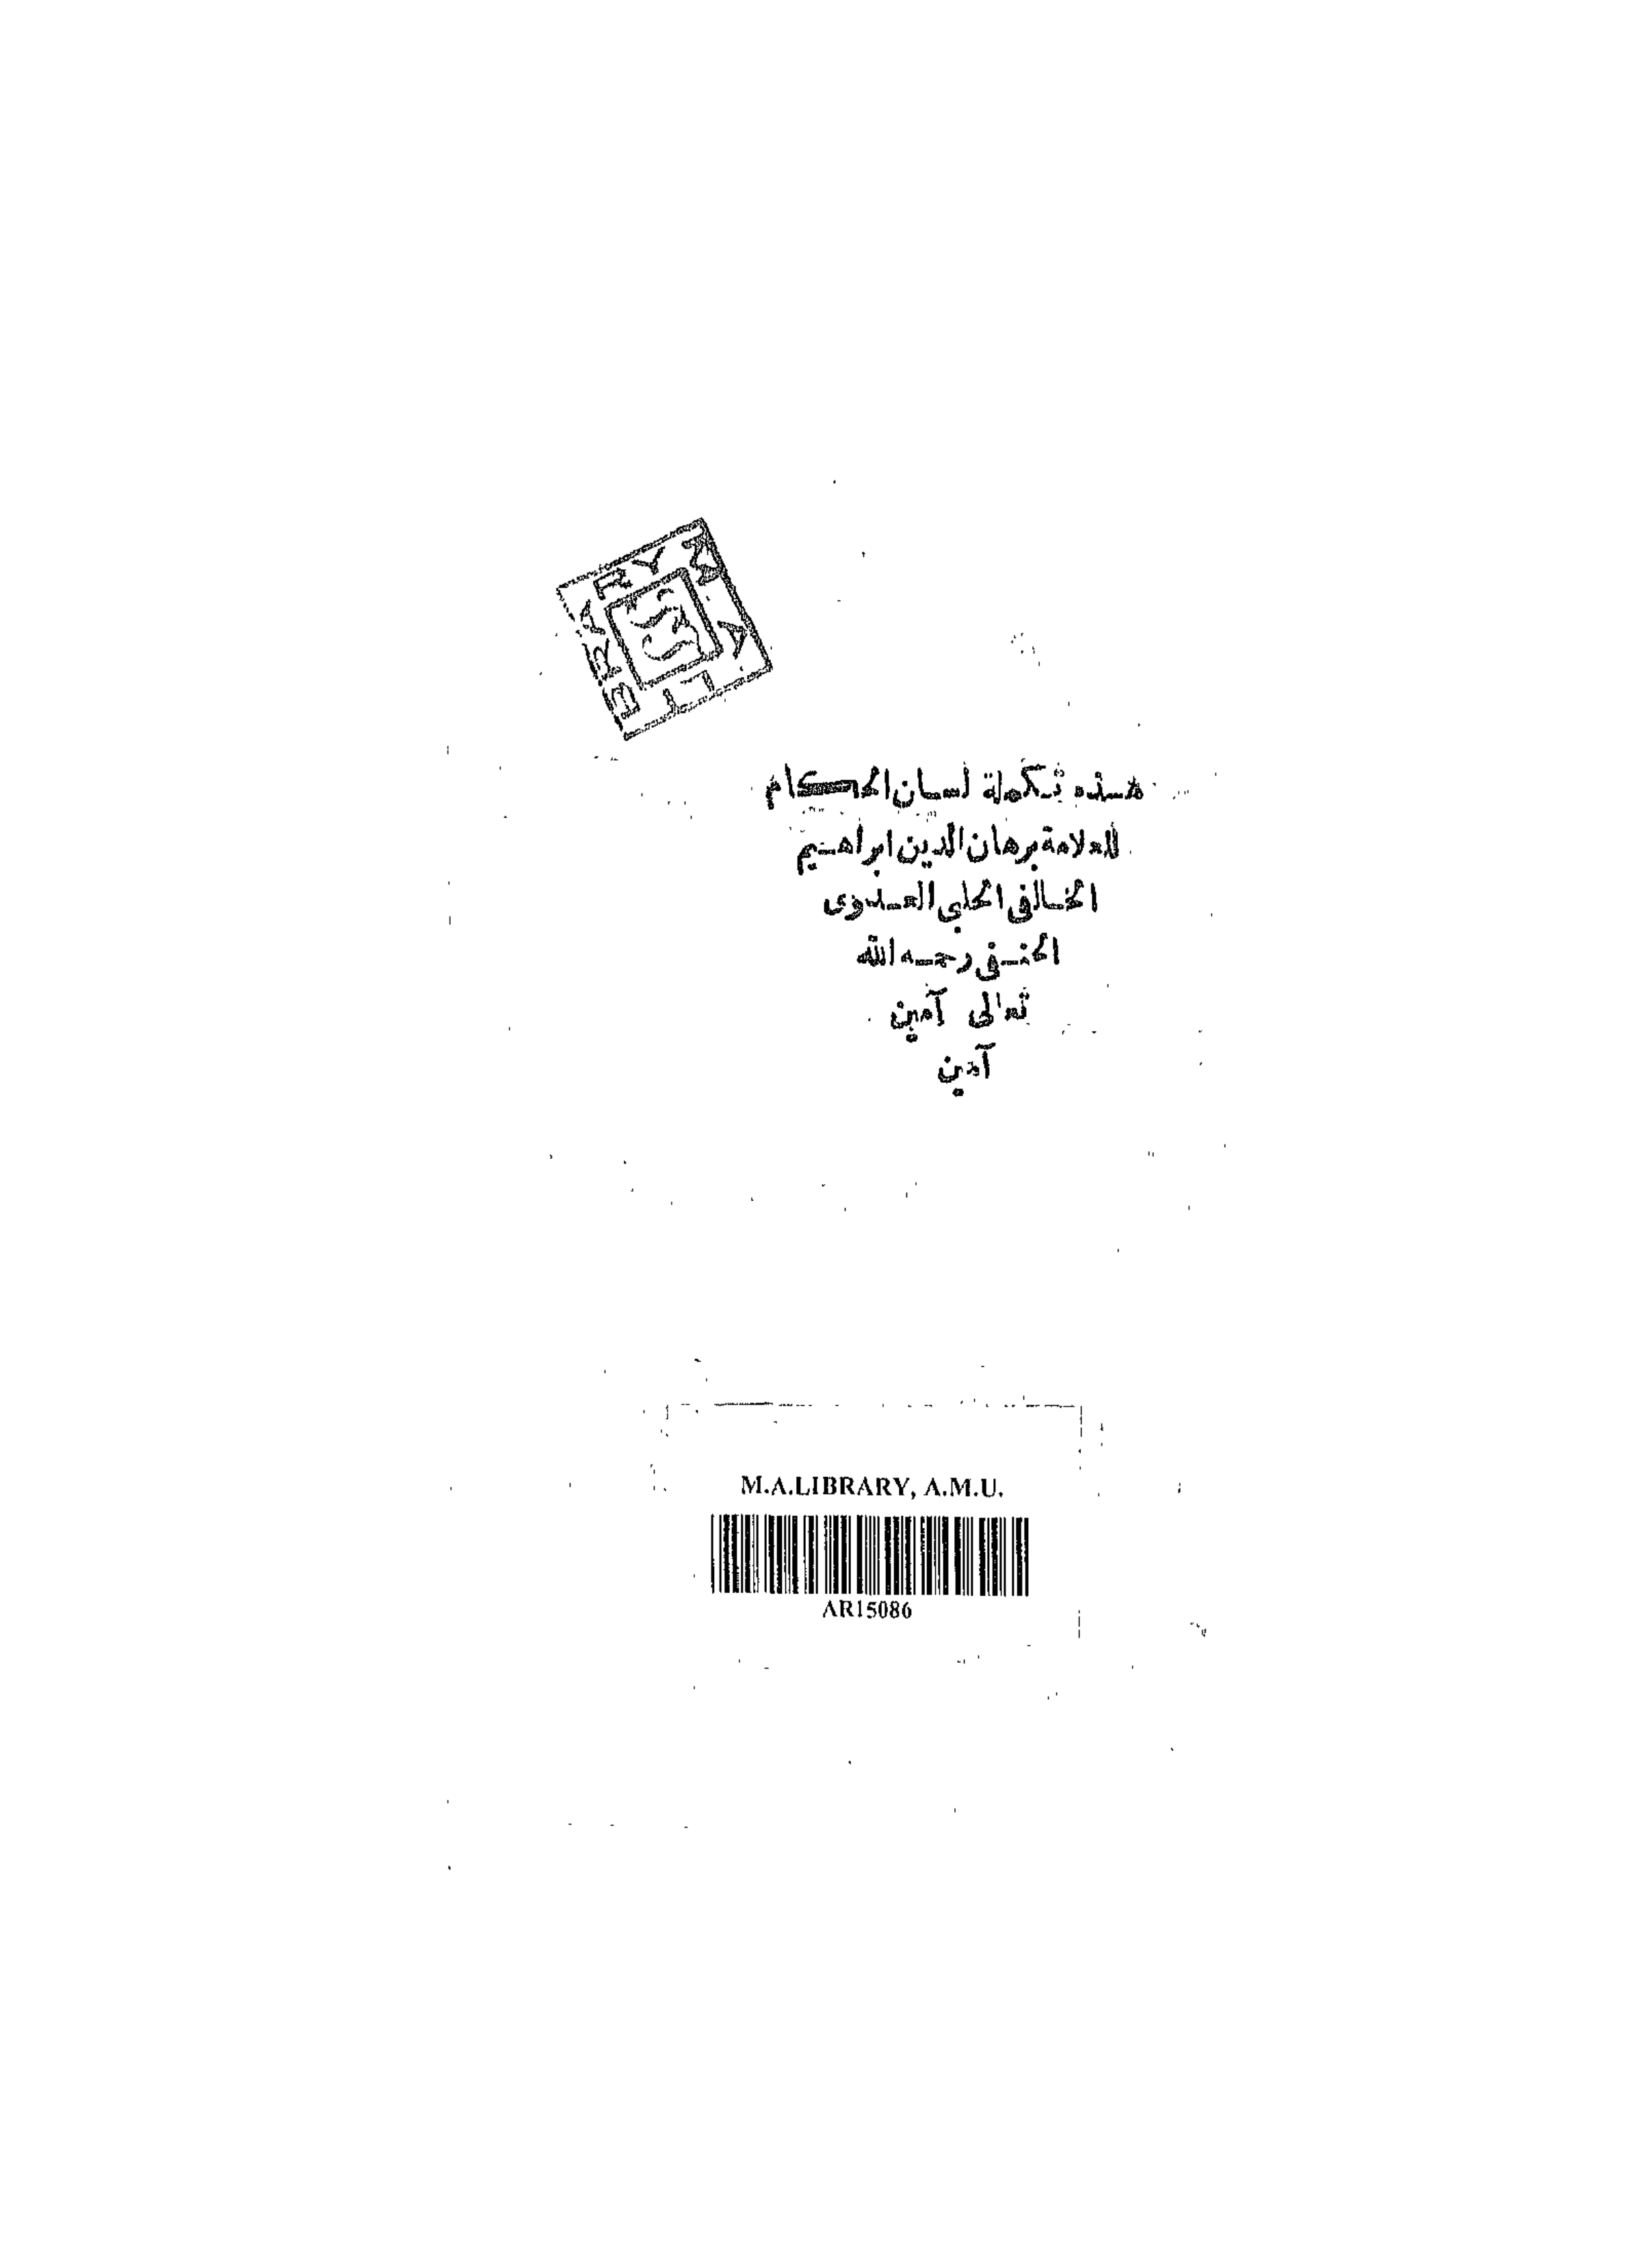 LIBRARY M.A.
هذه تكملة لسان الحكام
للعلامة برهان الدين ابراهيم
الخالفى الحلبى العدوى
الحنفى رحمه الله
تعالى آمين
آمين
M.A.LIBRARY, A.M.U.
AR15086